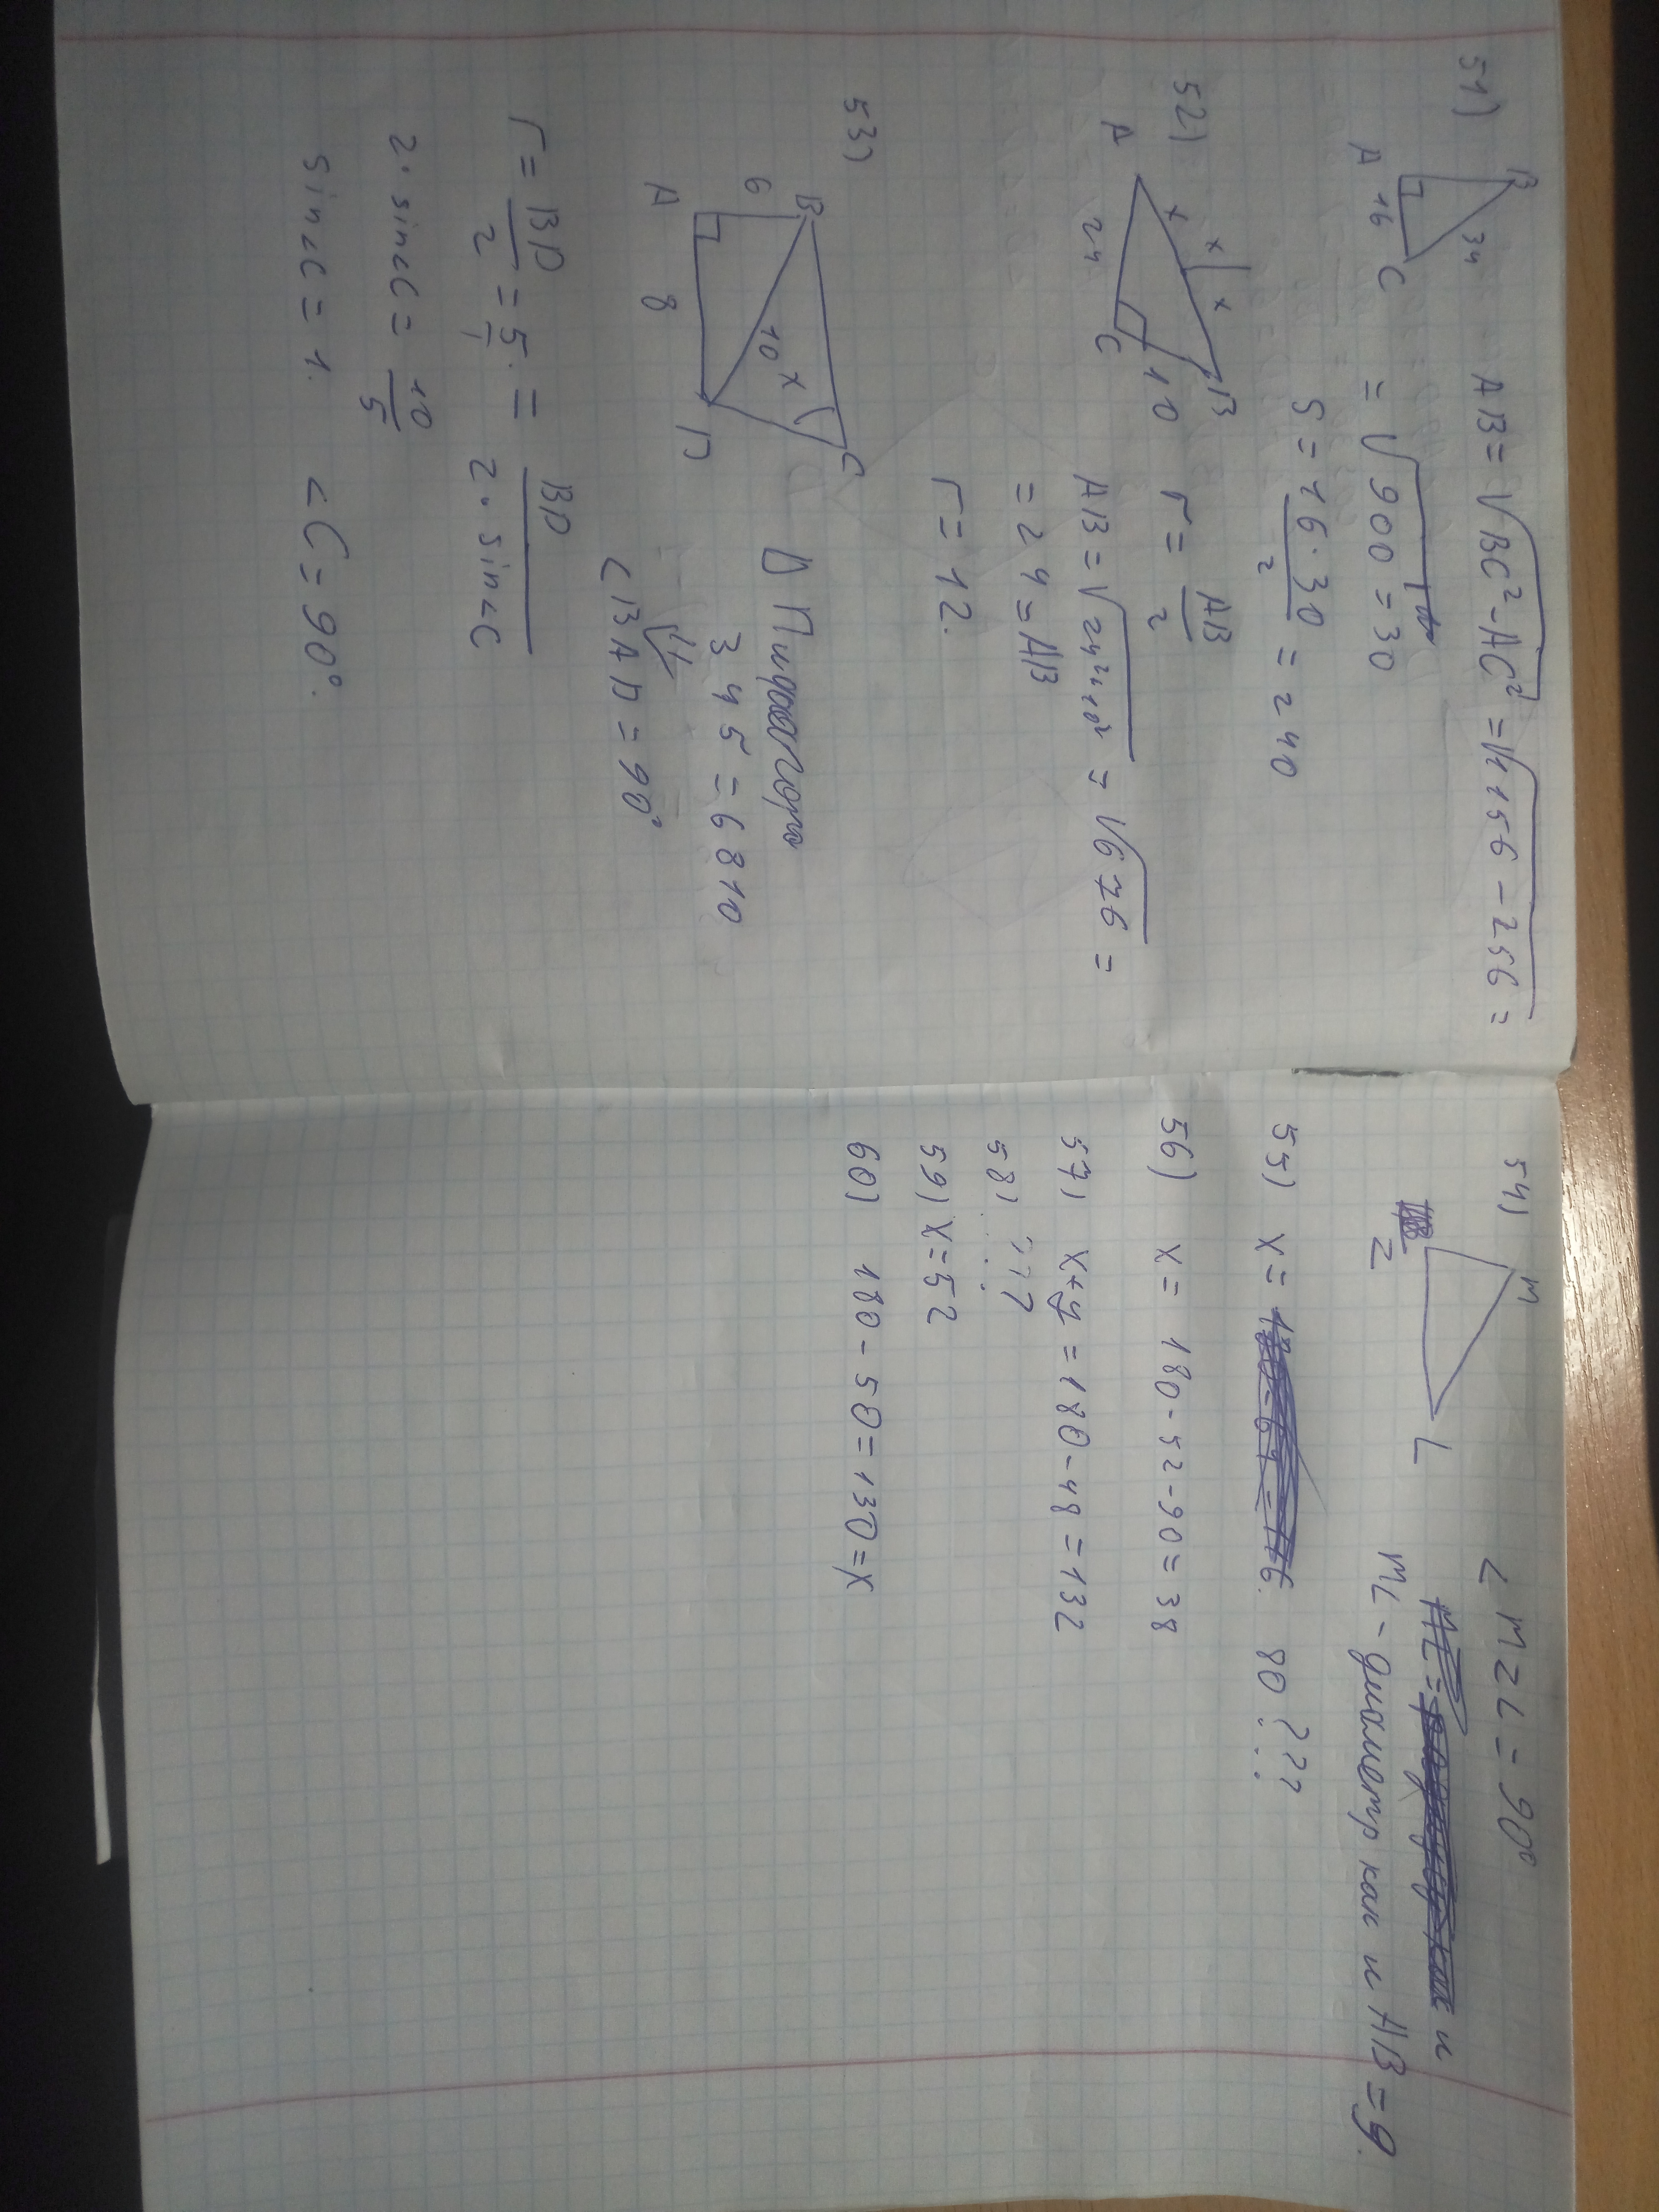 51)
B
34
A 16 C
AB = √BC² - AC² = √1156 - 256 =
= √900 = 30
S = 16·30/2 = 240
52)
A
x
x
x
B
24
C
10
r = AB/2
AB = √24²+10² = √676 =
= 24 = AB
r = 12.
53)
B
C
6
10
x
A
8
D
Пифагора
3 4 5 = 6 8 10
∠BAD = 90°
r = BD/2 = 5/1 = BD/2·sin∠C
2·sin∠C = 10/5
sin∠C = 1. ∠C = 90°.
54)
M
Z
L
∠MZL = 90°
и
ML - диаметр как и AB = 9.
55) x = 80 ???
56) x = 180 - 52 - 90 = 38
57) x+y = 180 - 48 = 132
58) ???
59) x = 52
60) 180 - 50 = 130 = x